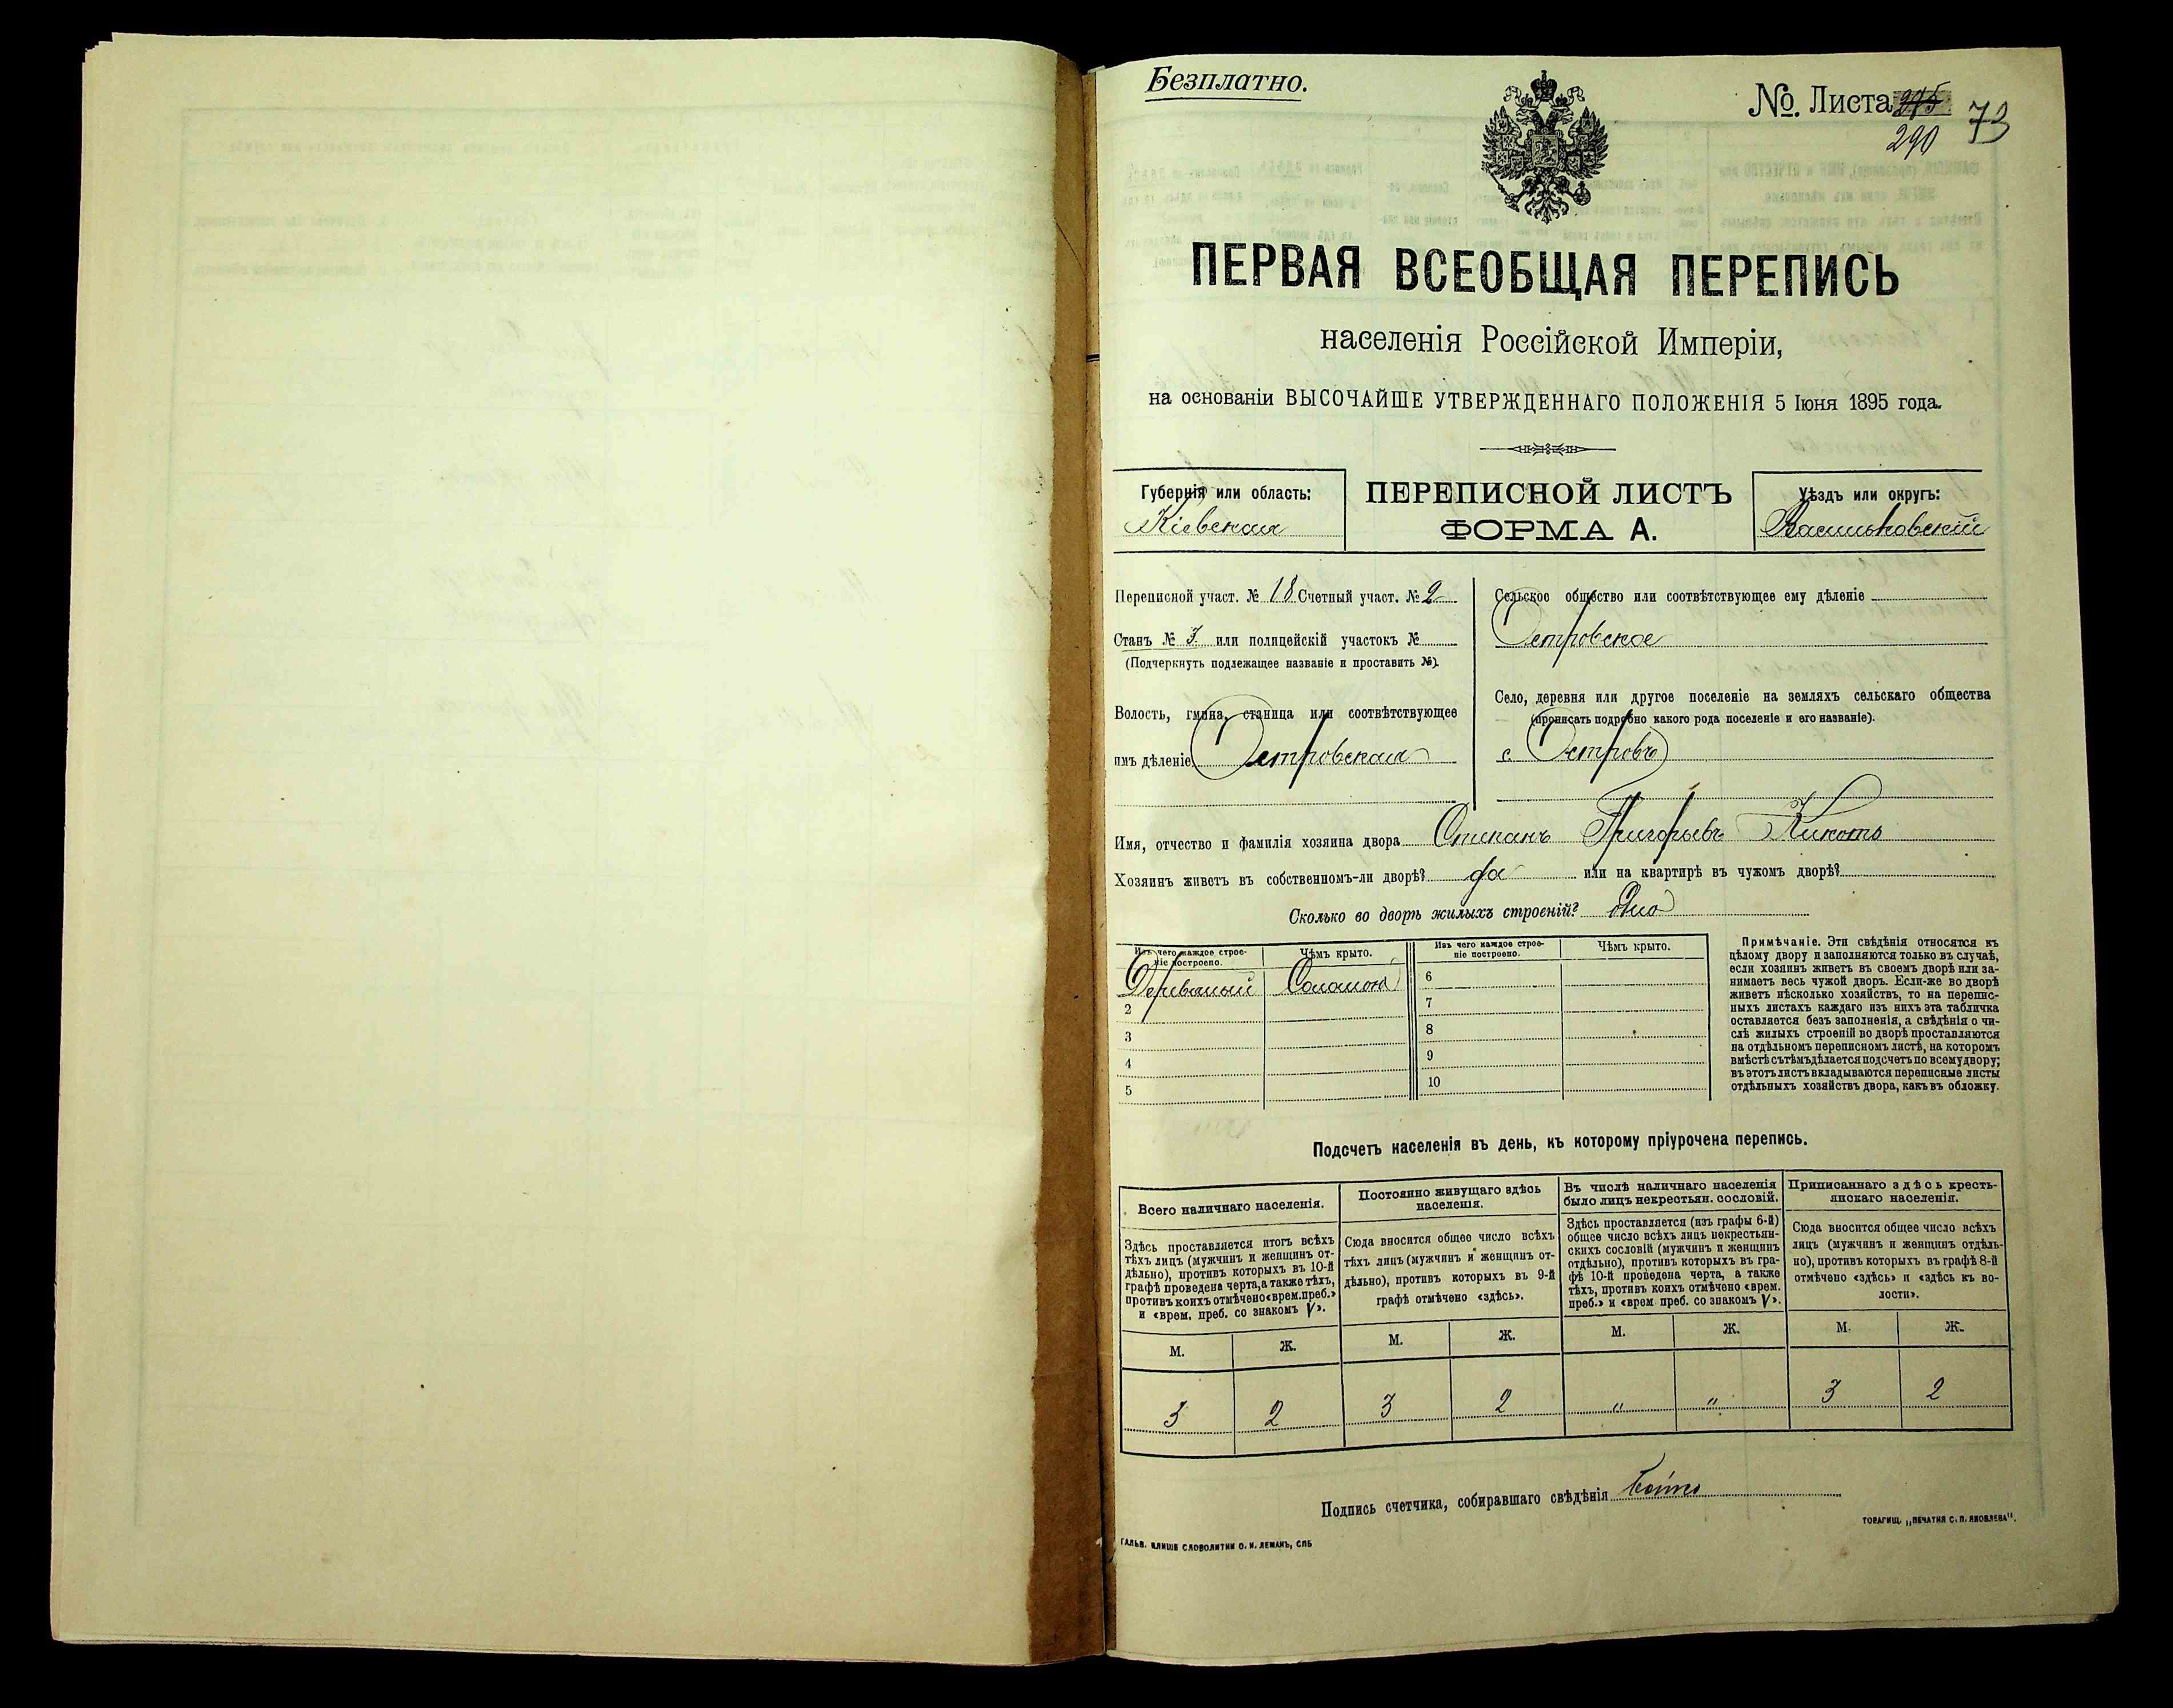 Безплатно.
No. Листа 275 73
290
ПЕРВАЯ ВСЕОБЩАЯ ПЕРЕПИСЬ
населенія Россійской Имперіи,
на основаніи ВЫСОЧАЙШЕ УТВЕРЖДЕННАГО ПОЛОЖЕНІЯ 5 Іюня 1895 года.
Губернія или область:
Кіевская
ПЕРЕПИСНОЙ ЛИСТЪ
ФОРМА А.
Уѣздъ или округъ:
Васильковскій
Переписной участ. № 18 Счетный участ. № 2
Станъ № 3 или полицейскій участокъ №
(Подчеркнуть подлежащее названіе и проставить №).
Волость, гмина, станица или соотвѣтствующее
имъ дѣленіе Островская
Сельское общество или соотвѣтствующее ему дѣленіе
Островское
Село, деревня или другое поселеніе на земляхъ сельскаго общества
(прописать подробно какого рода поселеніе и его названіе).
с. Островъ
Имя, отчество и фамилія хозяина двора Степанъ Григорьевъ Кикоть
Хозяинъ живетъ въ собственномъ-ли дворѣ? да или на квартирѣ въ чужомъ дворѣ?
Сколько во дворѣ жилыхъ строеній? одно
Изъ чего каждое строе-
ніе построено.
Чѣмъ крыто.
Изъ чего каждое строе-
ніе построено.
Чѣмъ крыто.
Деревяный Соломою
2
3
4
5
6
7
8
9
10
Примѣчаніе. Эти свѣдѣнія относятся къ
цѣлому двору и заполняются только въ случаѣ,
если хозяинъ живетъ въ своемъ дворѣ или за-
нимаетъ весь чужой дворъ. Если-же во дворѣ
живетъ нѣсколько хозяйствъ, то на перепис-
ныхъ листахъ каждаго изъ нихъ эта табличка
оставляется безъ заполненія, а свѣдѣнія о чи-
слѣ жилыхъ строеній во дворѣ проставляются
на отдѣльномъ переписномъ листѣ, на которомъ
вмѣстѣ съ тѣмъ дѣлается подсчетъ по всему двору;
въ этотъ листъ вкладываются переписные листы
отдѣльныхъ хозяйствъ двора, какъ въ обложку.
Подсчетъ населенія въ день, къ которому пріурочена перепись.
Всего наличнаго населенія.
Здѣсь проставляется итогъ всѣхъ
тѣхъ лицъ (мужчинъ и женщинъ от-
дѣльно), противъ которыхъ въ 10-й
графѣ проведена черта, а также тѣхъ,
противъ коихъ отмѣчено «врем. преб.»
и «врем. преб. со знакомъ V».
Постоянно живущаго здѣсь
населенія.
Сюда вносится общее число всѣхъ
тѣхъ лицъ (мужчинъ и женщинъ от-
дѣльно), противъ которыхъ въ 9-й
графѣ отмѣчено «здѣсь».
Въ числѣ наличнаго населенія
было лицъ некрестьян. сословій.
Здѣсь проставляется (изъ графы 6-й)
общее число всѣхъ лицъ некрестьян-
скихъ сословій (мужчинъ и женщинъ
отдѣльно), противъ которыхъ въ гра-
фѣ 10-й проведена черта, а также
тѣхъ, противъ коихъ отмѣчено «врем.
преб.» и «врем преб. со знакомъ V».
Приписаннаго здѣсь кресть-
янскаго населенія.
Сюда вносится общее число всѣхъ
лицъ (мужчинъ и женщинъ отдѣль-
но), противъ которыхъ въ графѣ 8-й
отмѣчено «здѣсь» и «здѣсь къ во-
лости».
М. Ж. М. Ж. М. Ж. М. Ж.
3 2 3 2 " " 3 2
Подпись счетчика, собиравшаго свѣдѣнія
ГАЛЬВ. КЛИШЕ СЛОВОЛИТНИ О. И. ЛЕМАНЪ, СПБ
ТОВАРИЩ. „ПЕЧАТНЯ С. П. ЯКОВЛЕВА".